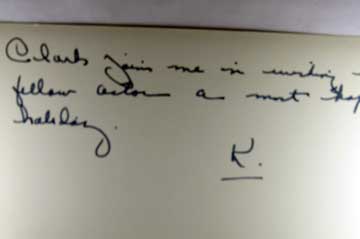 Clark joins me in wishing a
fellow actor a most hap
holiday.
K.